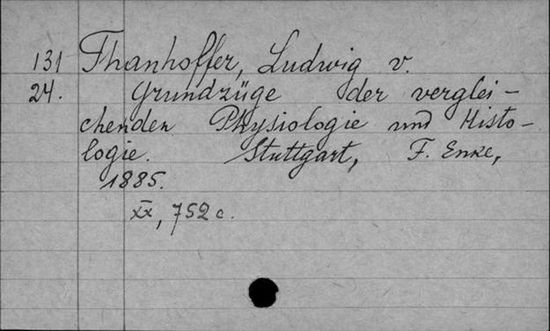 131 Thanhoffer, Ludwig v.
24. Grundzüge der verglei-
chenden Physiologie und Histo-
logie. Stuttgart, F. Enke,
1885.
XX, 752 c.